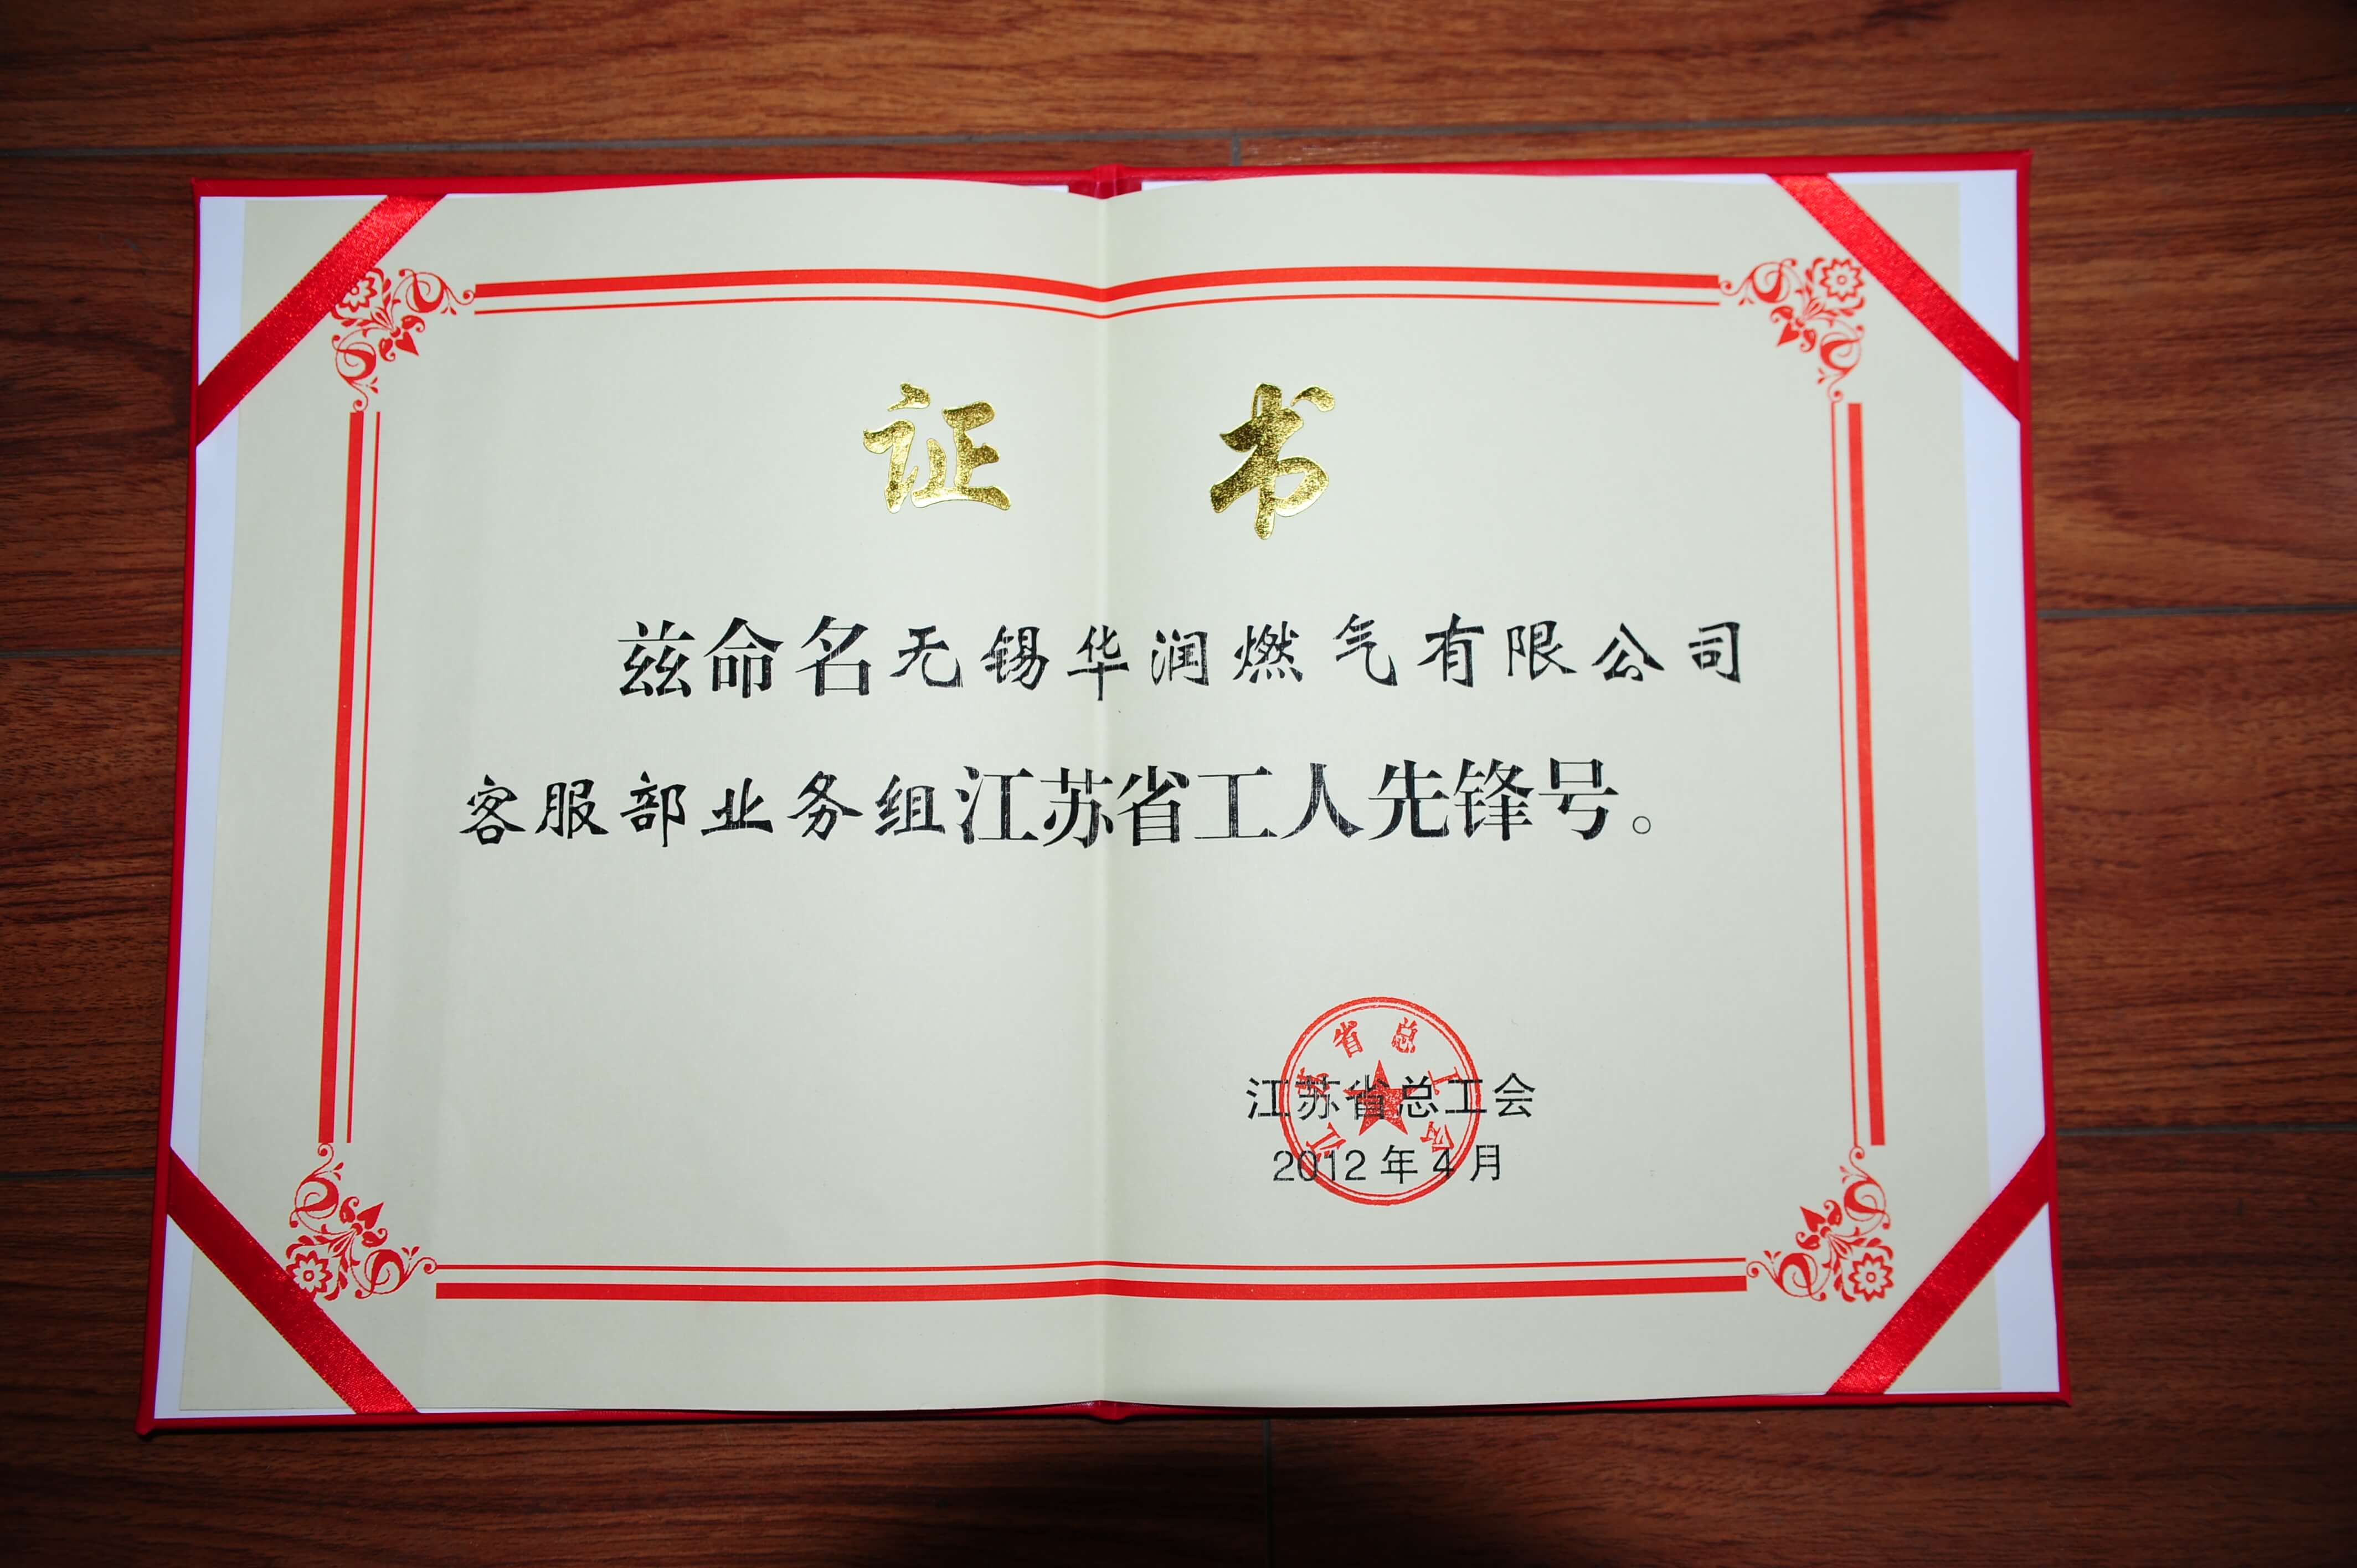 证书
兹命名无锡华润燃气有限公司
客服部业务组江苏省工人先锋号。
江苏省总工会
江苏省总工会
2012年4月